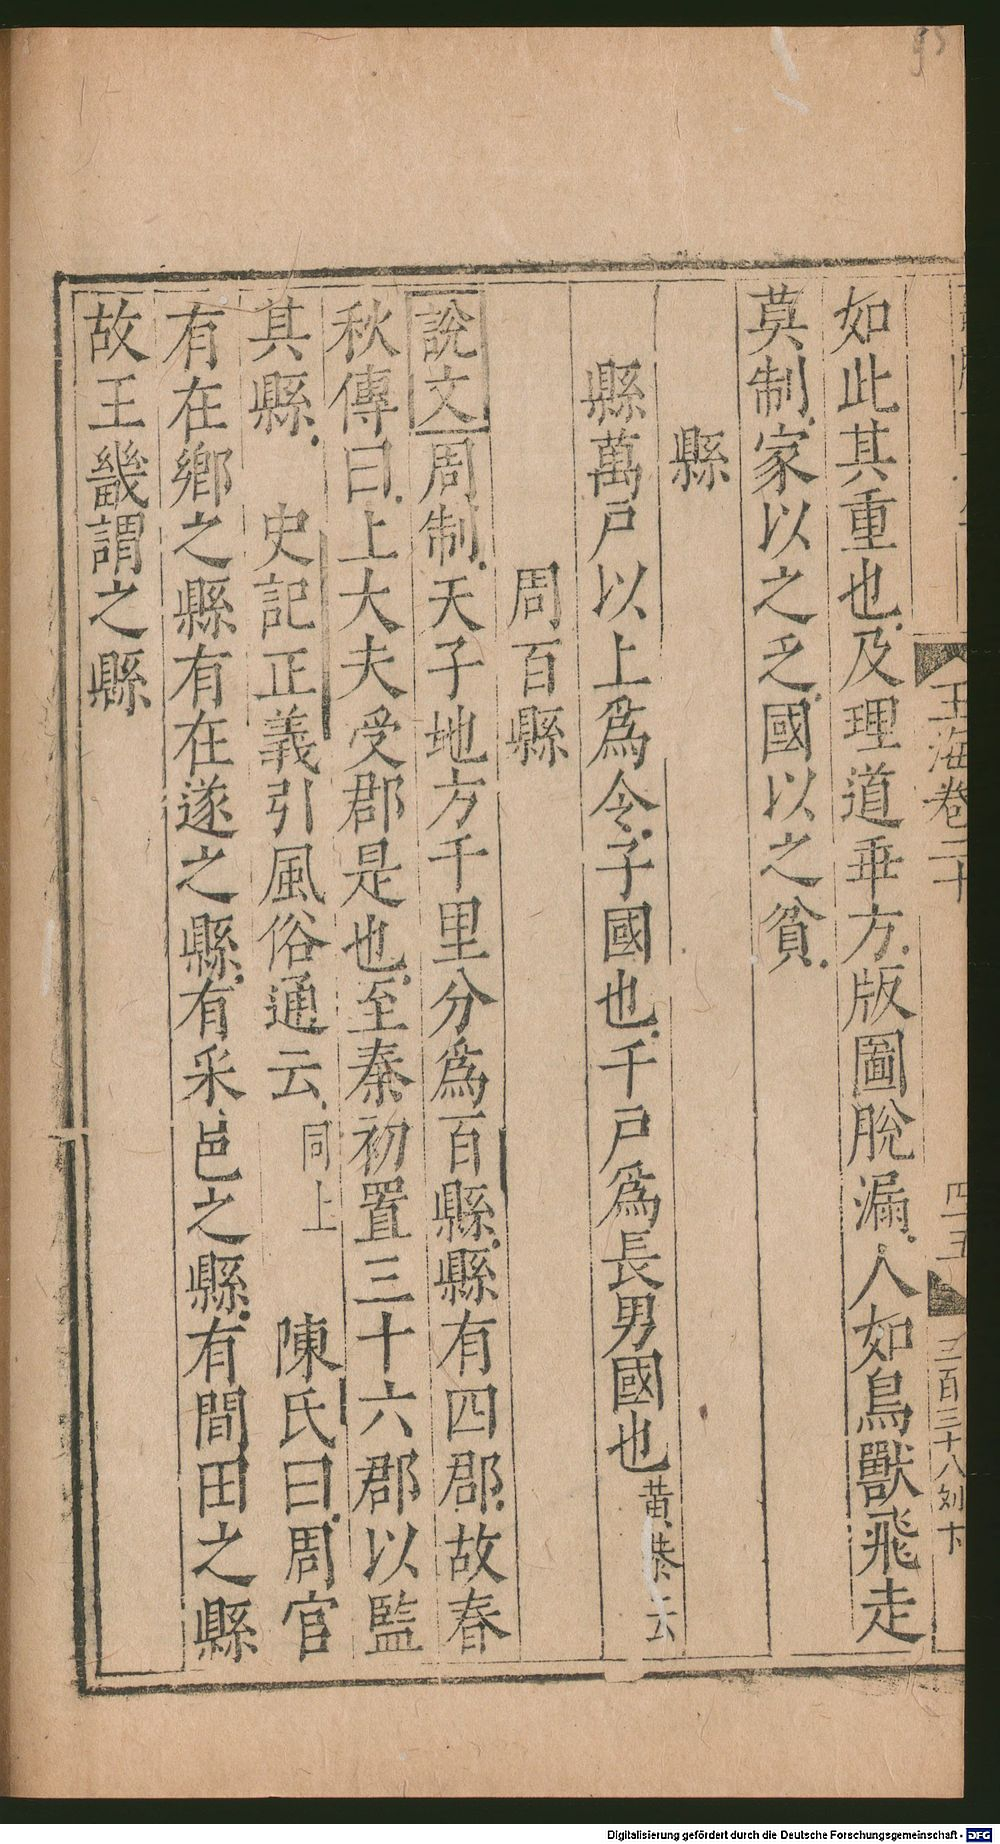 玉海卷二十
四五
三百三十八
如此其重也及理道乖方版圖脫漏人如鳥獸飛走
莫制家以之乏國以之貧
縣
縣萬戶以上爲令子國也千戶爲長男國也黄恭云
周百縣
說文周制天子地方千里分爲百縣縣有四郡故春
秋傳曰上大夫受郡是也至秦初置三十六郡以監
其縣 史記正義引風俗通云同上 陳氏曰周官
有在鄉之縣有在遂之縣有采邑之縣有間田之縣
故王畿謂之縣
Digitalisierung gefördert durch die Deutsche Forschungsgemeinschaft - DFG